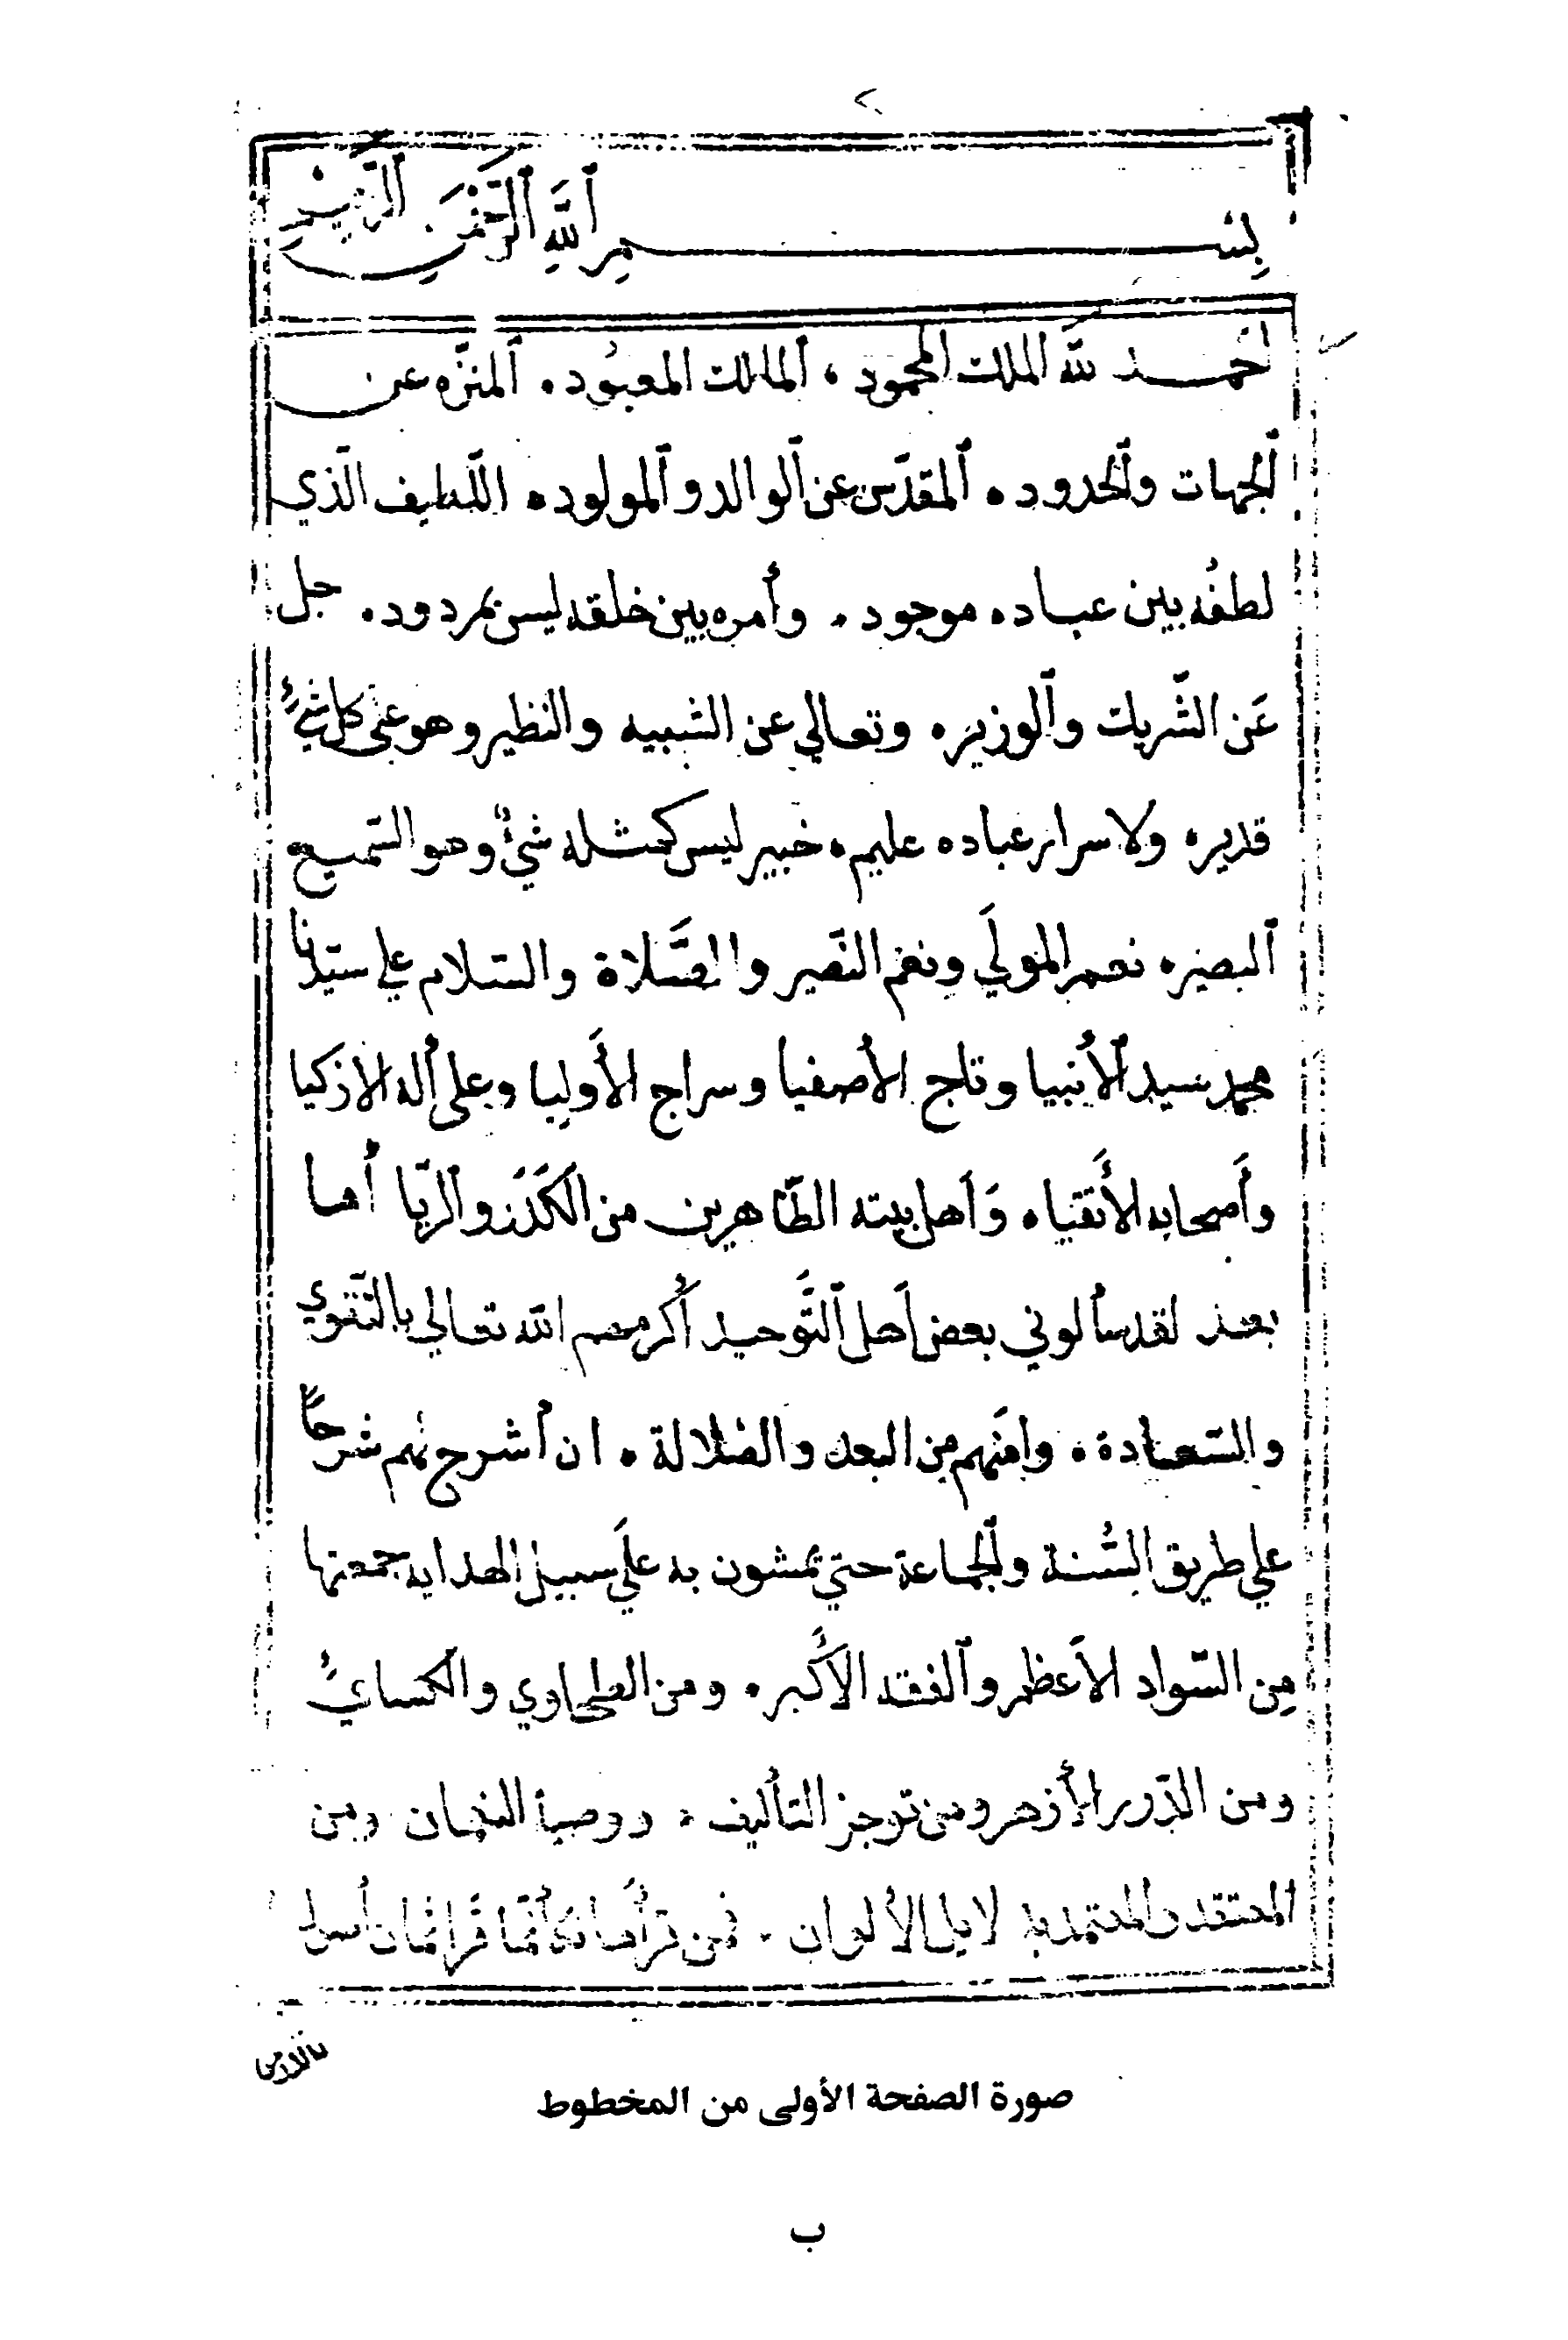 بِسْمِ ٱللَّهِ ٱلرَّحْمَنِ ٱلرَّحِيمِ
احمد لله الملك المحمود، ٱلمالك المعبُود. ٱلمنزّه عن
ٱلجهات وٱلحدود. ٱلمقدّس عن ٱلوالد وٱلمولود. اللّطيف الّذي
لطفُه بين عباده موجود. وأمره بين خلقه ليس بمردود. جل
عَن الشّريك وٱلوزير. وتعالي عن الشبيه والنظير وهو علي كل شيءٍ
قدير. ولاسرار عباده عليم. خبير ليس كمثله شيءٌ وهو السّميع
ٱلبصير. نعم المَولَي ونعم النّصير والصَّلاة والسّلام علي سيّدنا
محمد سيد ٱلأنبيا وتاج الأصفيا وسراج الأَوليا وعلى أله الازكيا
وأَصحابه الأَتقيا. وَأَهل بيته الطّاهرين من الكَدَر وٱلريّا أما
بعد لقد سألوني بعض أَهل ٱلتَّوحيد أكرمهم الله تعالي بالتّقوي
والسّعادة. وامنهم من البعد والضلالة. ان أشرح لهم شرحاً
علي طريق السُّنة وٱلجماعة حتي يمشون به علَي سبيل الهدايه جمعتها
مِن السّواد الأَعظم وٱلفقه الأَكبر. ومن الطحاوي والكسائي
ومن الدّرر الأزهر ومن توجز التأليف. ووصية النعمان ومن
المعتقد والمعتمد به لاهل الألوان. فمن قرأَها فكأنّما قرا ثمان أسول
صورة الصفحة الأولى من المخطوط
ب